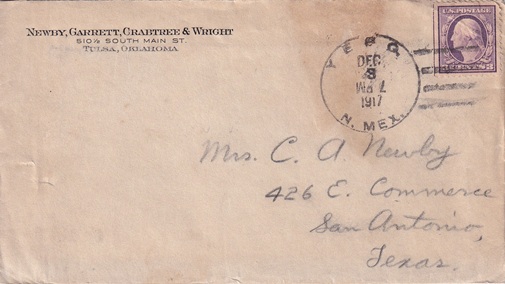 NEWBY, GARRETT, CRABTREE & WRIGHT
510½ SOUTH MAIN ST.
TULSA, OKLAHOMA
DEC
3
1917
N. MEX.
U.S. POSTAGE
CENTS 3
Mrs. C. A. Newby
426 E. Commerce
San Antonio,
Texas.